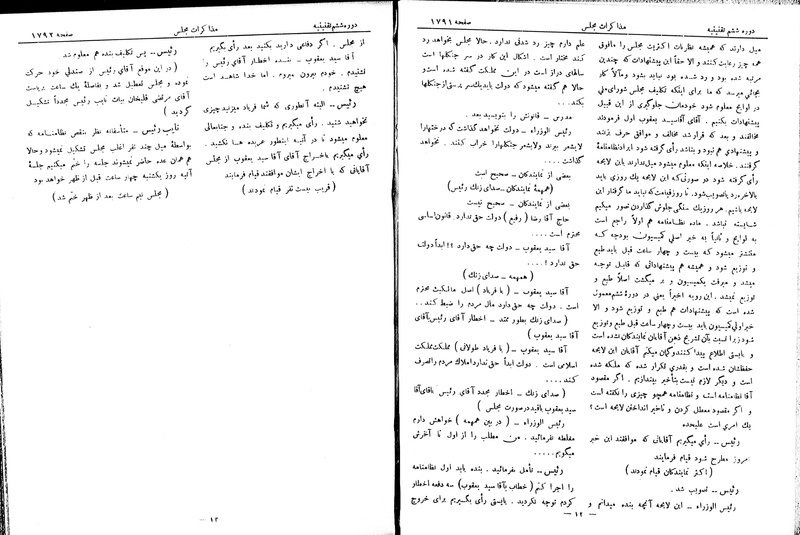 دوره ششم تقنینیه
مذاکرات مجلس
صفحه ۱۷۹۱
میل دارند که همیشه نظریات اکثریت مجلس را مافوق
همه چیز رعایت کنند و الا حقاً این پیشنهادات که چندین
مرتبه شده بود و رد شده بود نباید بشود و مآلا کار
بجائی میرسد که ما برای اینکه تکلیف مجلس شورای ملی
در لوایح معلوم شود خودمان جلوگیری از این قبیل
پیشنهادات بکنیم . آقای آقا سید یعقوب اول فرمودند
مخالفند و بعد که قرار شد مخالف و موافق حرف بزنند
و پیشنهادی هم نبود و بنا شد رأی گرفته شود ایراد نظامنامهٔ
گرفتند. خلاصه اینکه معلوم میشود میل ندارند باین لایحه
رأی گرفته شود در صورتی که این لایحه یک روزی باید
بالاخره رد یا تصویب شود. تا روز قیامت که نباید ما گرفتار این
لایحه باشیم. هر روز یک سنگی جلوش گذاردن تصور میکنم
شایسته نباشد . ماده نظامنامه هم اولا راجع است
به لوایح و ثانیاً به خبر اصلی کمیسیون بودجه که
منتشر میشود که بیست و چهار ساعت قبل باید طبع
و توزیع شود و همیشه هم پیشنهاداتی که قابل توجه
میشد و میرفت بکمیسیون و بر میگشت اصلا طبع و
توزیع نمیشد . این رویه اخیراً یعنی در دورهٔ ششم معمول
شده است که پیشنهادات هم طبع و توزیع شود و الا
خبر اولی کمیسیون باید بیست و چهار ساعت قبل طبع و توزیع
شود زیرا نسبت بآن تشریح ذهن آقایان نمایندگان نشده است
و بایستی اطلاع پیدا کنند و گمان میکنم آقایان این لایحه
حفظشان شده است و بقدری تکرار شده که ملکه شده
است و دیگر لازم نیست بتأخیر بیندازیم . اگر مقصود
آقا نظامنامه است و نظامنامه همچو چیزی را نگفته است
و اگر مقصود معطل کردن و تاخیر انداختن لایحه است ؟
یک امری است علیحده
رئیس ــ رأی میگیریم آقایانی که موافقند این خبر
امروز مطرح شود قیام فرمایند
( اکثر نمایندگان قیام نمودند )
رئیس ــ تصویب شد .
رئیس الوزراء ــ این لایحه آنچه بنده میدانم و
علم دارم چیز رد شدنی ندارد. حالا مجلس بخواهد رد
کند مختار است . اشکال این کار در سر جنگلها است
سالهای دراز است در این مملکت گفته شده است و
حالا هم گفته میشود که دولت باید یک سرپرستی از جنگلها
بکند...
مدرس ــ قانونش را بنویسید بعد .
رئیس الوزراء ــ دولت نخواهد گذاشت که درختها را
لا یشعر ببرند و لا یشعر جنگلها را خراب کنند . نخواهد
گذاشت ....
بعضی از نمایندگان ــ صحیح است
(همهمه نمایندگان ــ صدای زنگ رئیس)
بعضی از نمایندگان ــ صحیح نیست
حاج آقا رضا ( رفیع ) دولت حق ندارد . قانون اساسی
محترم است ....
آقا سید یعقوب ــ دولت چه حق دارد !؟ ابداً دولت
حق ندارد ! ....
( همهمه ــ صدای زنگ )
آقا سید یعقوب ــ ( با فریاد ) اصل مالکیت محترم
است . دولت چه حق دارد مال مردم را ضبط کند . .
( صدای زنگ بطور ممتد ــ اخطار آقای رئیس بآقای
آقا سید یعقوب )
آقا سید یعقوب ــ ( با فریاد طولانی ) مملکت مملکت
اسلامی است . دولت ابداً حق ندارد املاک مردم را تصرف
کند ....
( صدای زنگ ــ اخطار مجدد آقای رئیس بآقای آقا
سید یعقوب باقید در صورت مجلس )
رئیس الوزراء ــ ( در بین همهمه ) خواهش دارم
مغلطه نفرمائید . من مطلب را از اول تا آخرش
میگویم.....
رئیس ــ تأمل بفرمائید . بنده باید اول نظامنامه
را اجرا کنم ( خطاب بآقا سید یعقوب) سه دفعه اخطار
کردم توجه نکردید . بایستی رأی بگیریم برای خروج
ــ ۱۲ ــ
دوره ششم تقنینیه
مذاکرات مجلس
صفحه ۱۷۹۲
از مجلس . اگر دفاعی دارید بکنید بعد رأی بگیریم
آقا سید یعقوب ــ بنده اخطار آقای رئیس را
نشنیدم . خودم بیرون میروم . اما خدا شاهد است
هیچ نشنیدم .
رئیس ــ البته آنطوری که شما فریاد میزنید چیزی
نخواهید شنید . رأی میگیریم و تکلیف بنده و جنابعالی
معلوم میشود تا در آتیه اینطور عربده ها نکشید .
رأی میگیریم باخراج آقای آقا سید یعقوب از مجلس
آقایانی که با اخراج ایشان موافقند قیام فرمایند
( قریب بیست نفر قیام نمودند )
رئیس ــ پس تکلیف بنده هم معلوم شد
( در این موقع آقای رئیس از صندلی خود حرکت
نموده و مجلس تعطیل شد و بفاصلهٔ یک ساعت بریاست
آقای مرتضی قلیخان بیات نایب رئیس مجدداً تشکیل
گردید )
نایب رئیس ــ متأسفانه نظر بنقص نظامنامه که
بواسطهٔ میل چند نفر اغلب مجلس تشکیل نمیشود و حالا
هم همان عده حاضر نمیشوند جلسه را ختم میکنیم جلسهٔ
آتیه روز یکشنبه چهار ساعت قبل از ظهر خواهد بود
( مجلس نیم ساعت بعد از ظهر ختم شد )
ــ ۱۳ ــ